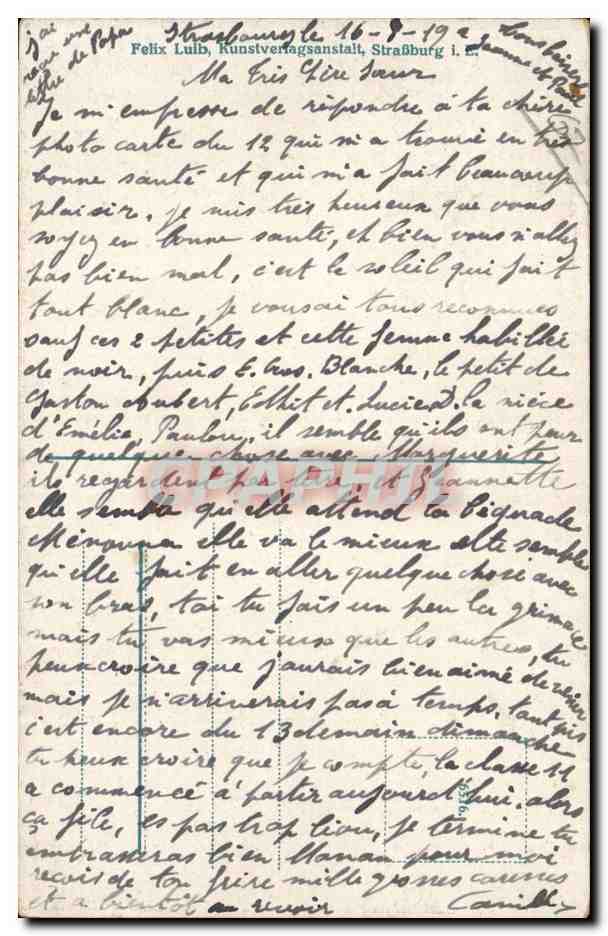 j'ai
reçu une
lettre de Papa
Strasbourg le 16-8-19
Felix Luib, Kunstverlagsanstalt, Straßburg i. E.
Bons baisers
Jeanne et Paul
Ma Très Chère Sœur
Je m'empresse de répondre à ta chère
photo carte du 12 qui m'a trouvé en très
bonne santé et qui m'a fait beaucoup
plaisir, je suis très heureux que vous
soyez en bonne santé, eh bien vous n'allez
pas bien mal, c'est le soleil qui fait
tout blanc, je vous ai tous reconnues
sauf ces 2 petites et cette femme habillée
de noir, puis E. Blanche, le petit de
Gaston Joubert, Edhit et Lucie D. la nièce
d'Emélie, Paulou, il semble qu'ils ont peur
de quelque chose avec Marguerite
ils regardent et Jeannette
elle sembla qu'elle attend ta béguade
elle va le mieux elle semble
qu'elle fait en aller quelque chose avec
son bras, toi tu fais un peu la grimace
mais tu vas mieux que les autres, tu
peux croire que j'aurais bien aimé de venir
mais je n'arriverais pas à temps, tant pis
c'est encore du 13 demain dimanche
tu peux croire que je compte, la classe 11
a commencé à partir aujourd'hui, alors
ça file, es pas trop, je termine tu
embrasseras bien Maman pour moi
reçois de ton frère mille grosses caresses
et a bientôt au revoir Camille
6516
CPAPHIL